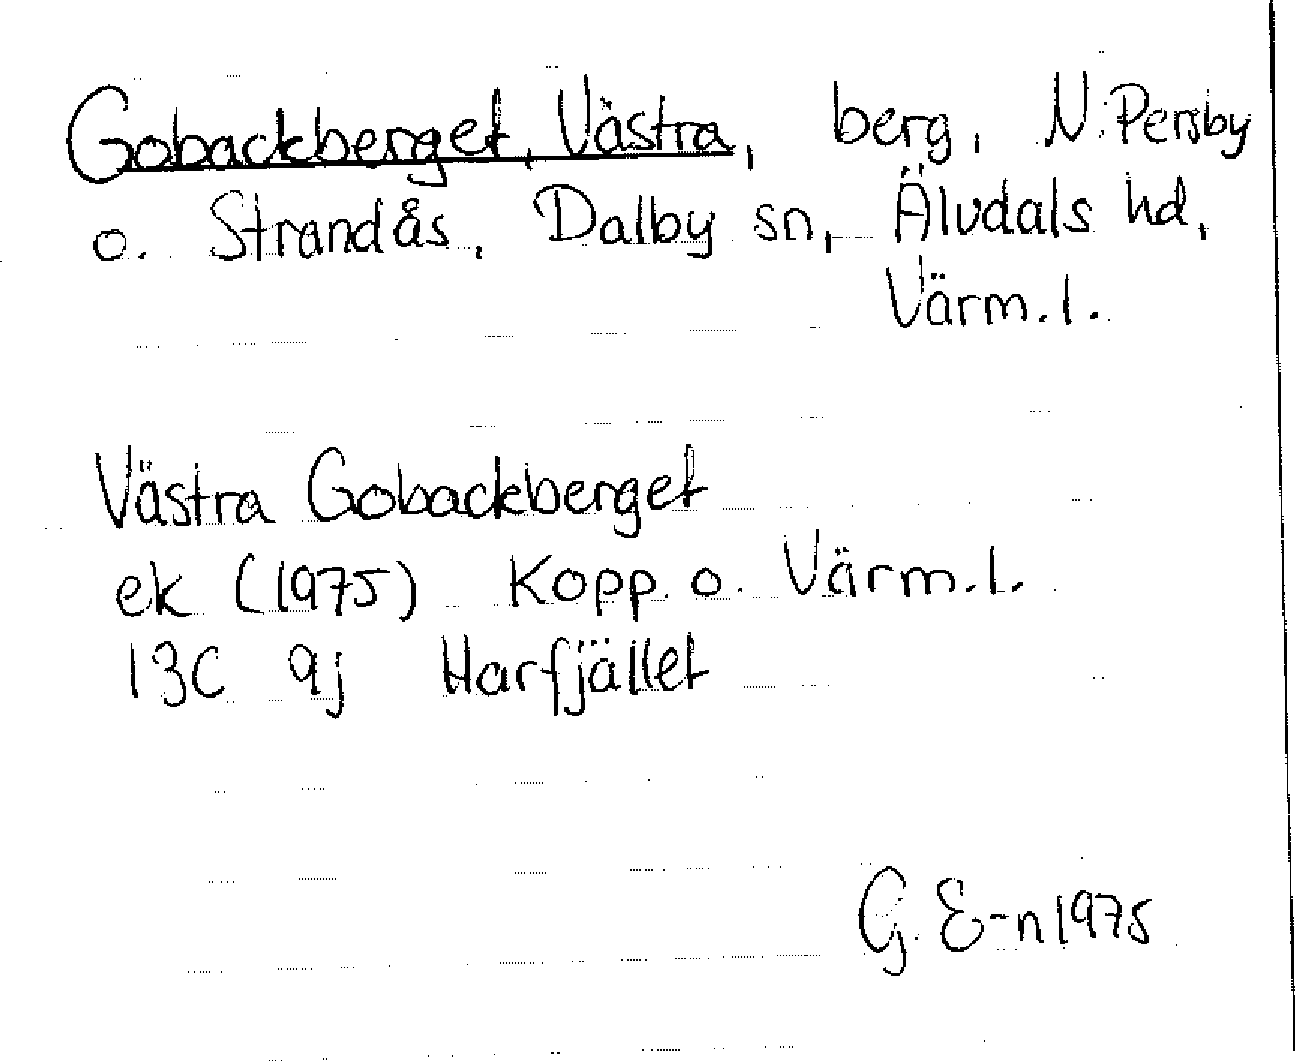 Gobackberget, Västra, berg, N. Persby
o. Strandås, Dalby sn, Älvdals hd,
Värm. l.
Västra Gobackberget
ek (1975) Kopp. o. Värm. l.
13C 9j Harfjället
G. E-n 1975